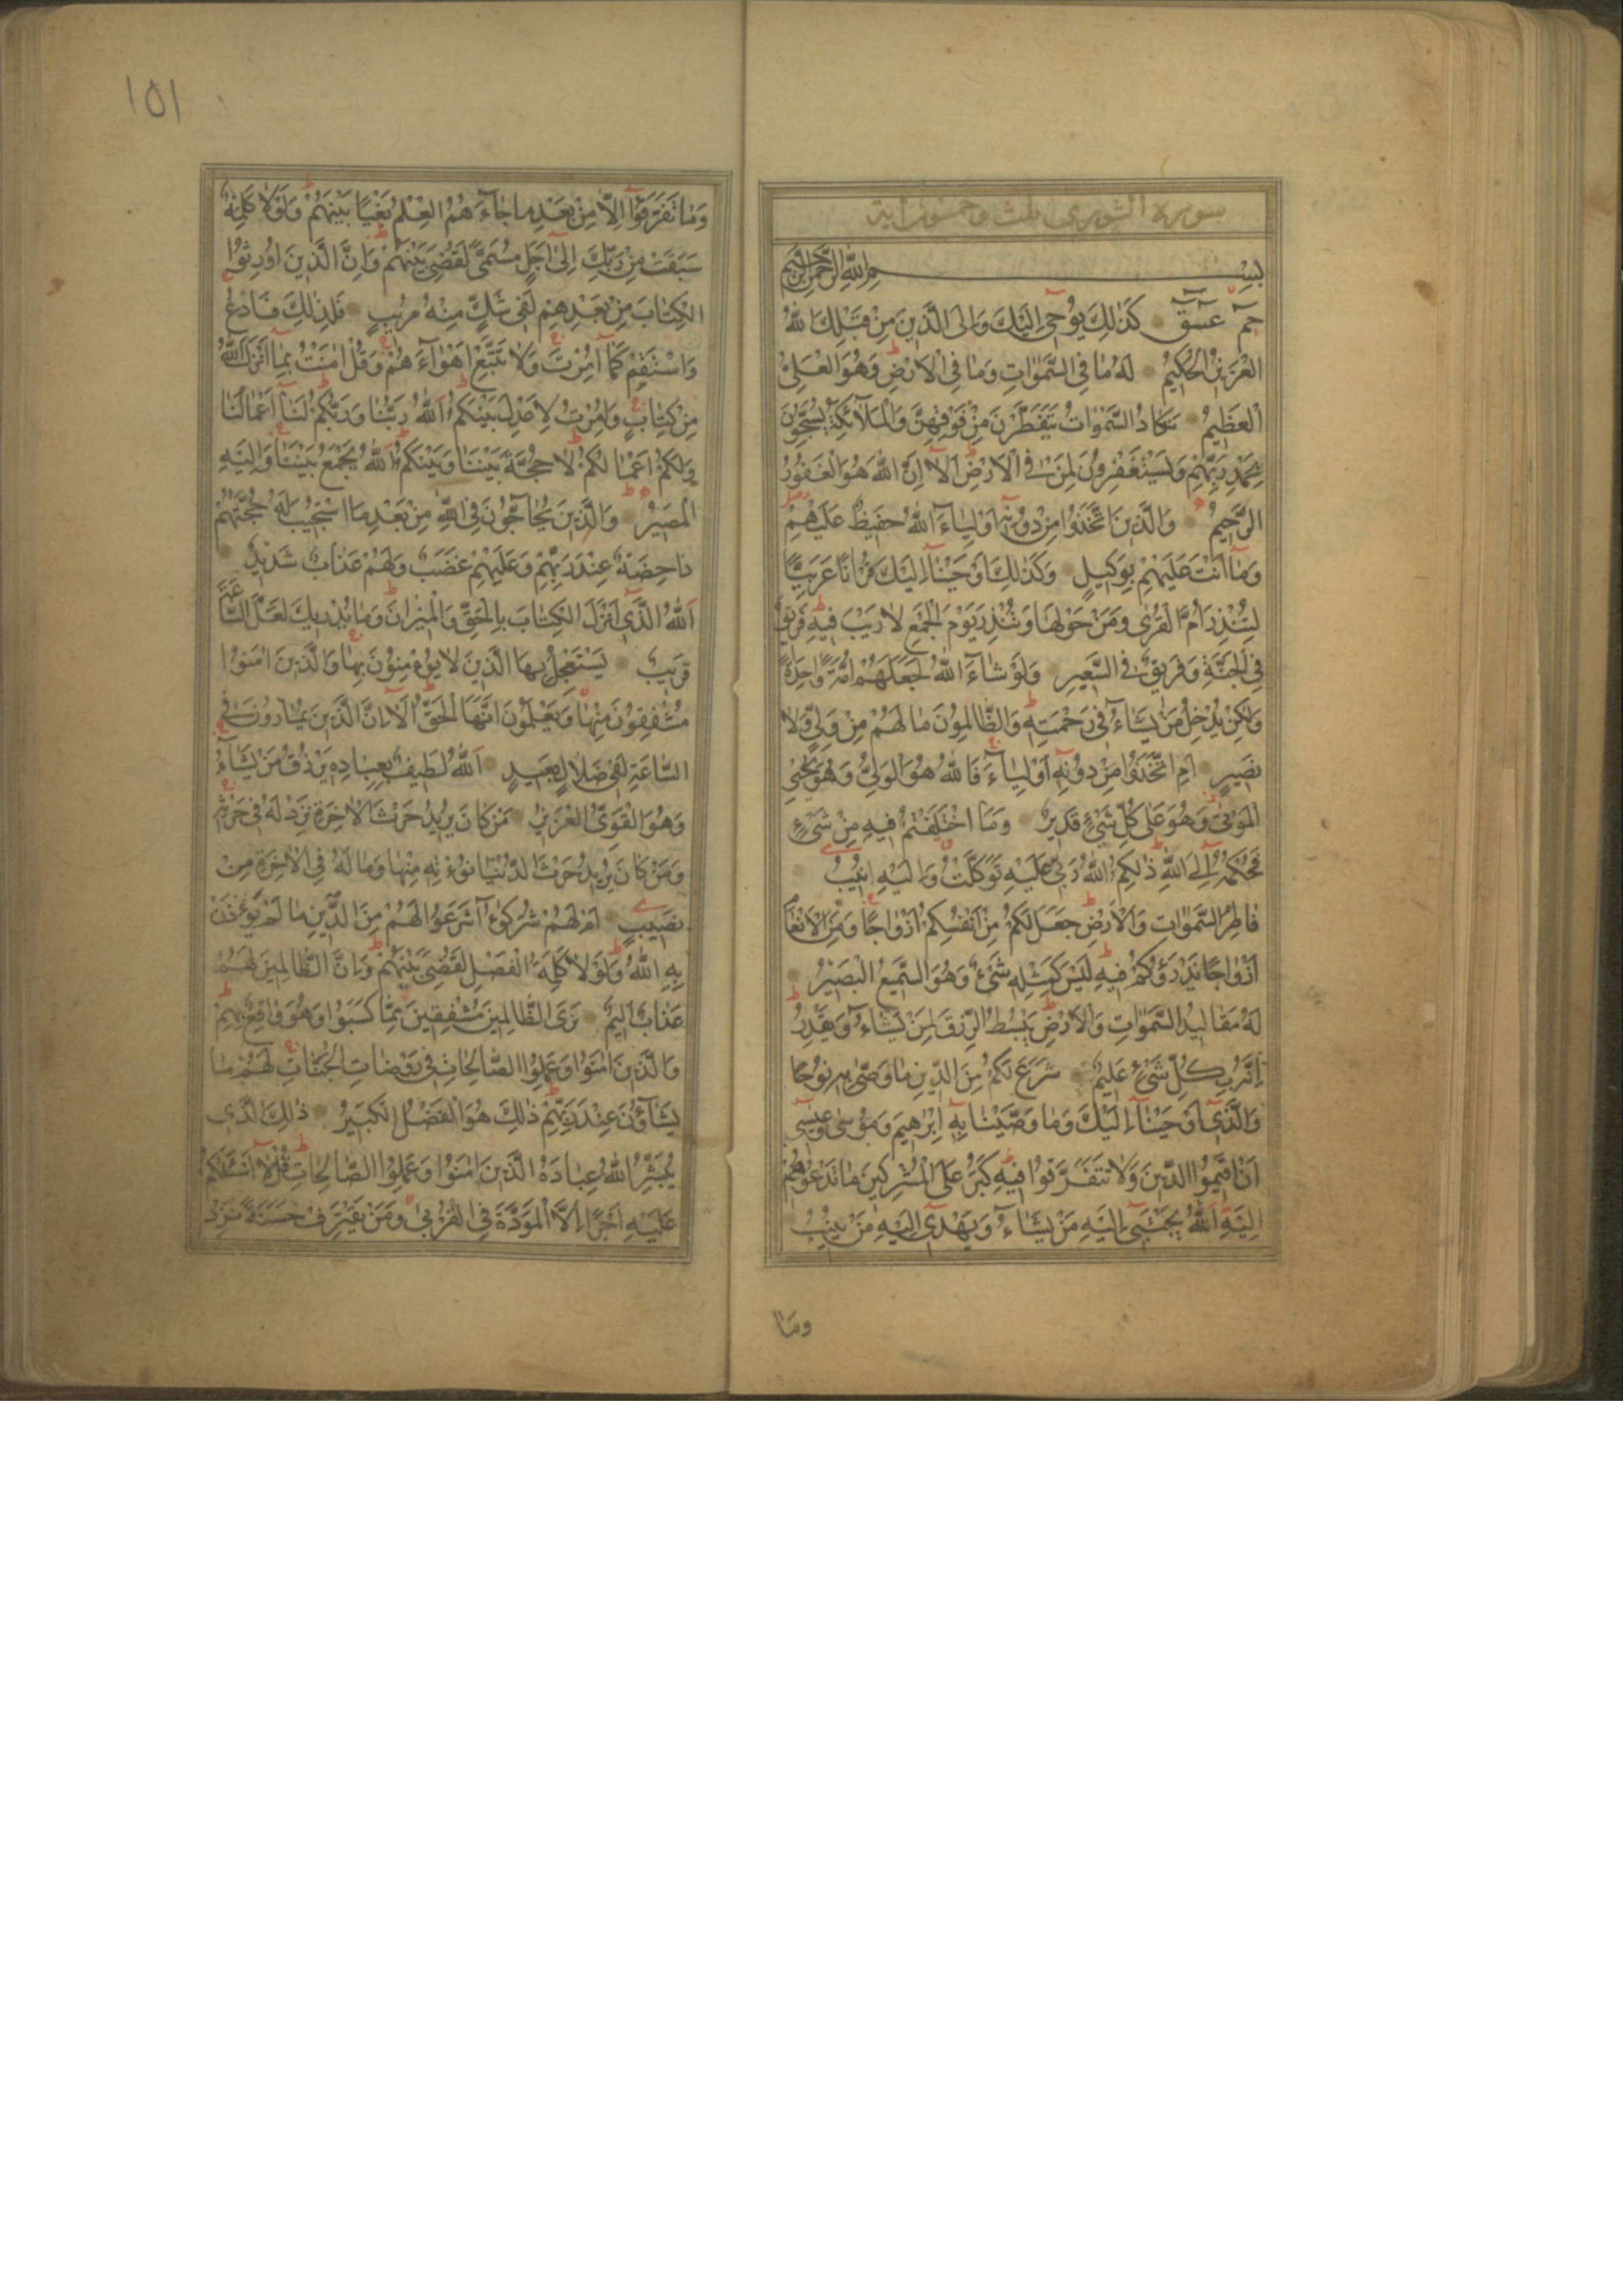 سورة الشورى ثلث وخمسون اية
بِسْمِ اللّٰهِ الرَّحْمٰنِ الرَّحِيمِ
حم عسق كَذٰلِكَ يُوحِي اِلَيْكَ وَاِلَى الَّذِينَ مِنْ قَبْلِكَ اللّٰهُ
الْعَزِيزُ الْحَكِيمُ لَهُ مَا فِي السَّمٰوَاتِ وَمَا فِي الْاَرْضِ وَهُوَ الْعَلِيُّ
الْعَظِيمُ تَكَادُ السَّمٰوَاتُ يَتَفَطَّرْنَ مِنْ فَوْقِهِنَّ وَالْمَلٰٓئِكَةُ يُسَبِّحُونَ
بِحَمْدِ رَبِّهِمْ وَيَسْتَغْفِرُونَ لِمَنْ فِي الْاَرْضِ اَلَا اِنَّ اللّٰهَ هُوَ الْغَفُورُ
الرَّحِيمُ وَالَّذِينَ اتَّخَذُوا مِنْ دُونِهِ اَوْلِيَاءَ اللّٰهُ حَفِيظٌ عَلَيْهِمْ
وَمَا اَنْتَ عَلَيْهِمْ بِوَكِيلٍ وَكَذٰلِكَ اَوْحَيْنَا اِلَيْكَ قُرْاٰنًا عَرَبِيًّا
لِتُنْذِرَ اُمَّ الْقُرٰى وَمَنْ حَوْلَهَا وَتُنْذِرَ يَوْمَ الْجَمْعِ لَا رَيْبَ فِيهِ فَرِيقٌ
فِي الْجَنَّةِ وَفَرِيقٌ فِي السَّعِيرِ وَلَوْ شَاءَ اللّٰهُ لَجَعَلَهُمْ اُمَّةً وَاحِدَةً
وَلٰكِنْ يُدْخِلُ مَنْ يَشَاءُ فِي رَحْمَتِهِ وَالظَّالِمُونَ مَا لَهُمْ مِنْ وَلِيٍّ وَلَا
نَصِيرٍ اَمِ اتَّخَذُوا مِنْ دُونِهِ اَوْلِيَاءَ فَاللّٰهُ هُوَ الْوَلِيُّ وَهُوَ يُحْيِي
الْمَوْتٰى وَهُوَ عَلٰى كُلِّ شَيْءٍ قَدِيرٌ وَمَا اخْتَلَفْتُمْ فِيهِ مِنْ شَيْءٍ
فَحُكْمُهُ اِلَى اللّٰهِ ذٰلِكُمُ اللّٰهُ رَبِّي عَلَيْهِ تَوَكَّلْتُ وَاِلَيْهِ اُنِيبُ
فَاطِرُ السَّمٰوَاتِ وَالْاَرْضِ جَعَلَ لَكُمْ مِنْ اَنْفُسِكُمْ اَزْوَاجًا وَمِنَ الْاَنْعَامِ
اَزْوَاجًا يَذْرَؤُكُمْ فِيهِ لَيْسَ كَمِثْلِهِ شَيْءٌ وَهُوَ السَّمِيعُ الْبَصِيرُ
لَهُ مَقَالِيدُ السَّمٰوَاتِ وَالْاَرْضِ يَبْسُطُ الرِّزْقَ لِمَنْ يَشَاءُ وَيَقْدِرُ
اِنَّهُ بِكُلِّ شَيْءٍ عَلِيمٌ شَرَعَ لَكُمْ مِنَ الدِّينِ مَا وَصّٰى بِهِ نُوحًا
وَالَّذِي اَوْحَيْنَا اِلَيْكَ وَمَا وَصَّيْنَا بِهِ اِبْرٰهِيمَ وَمُوسٰى وَعِيسٰى
اَنْ اَقِيمُوا الدِّينَ وَلَا تَتَفَرَّقُوا فِيهِ كَبُرَ عَلَى الْمُشْرِكِينَ مَا تَدْعُوهُمْ
اِلَيْهِ اللّٰهُ يَجْتَبِي اِلَيْهِ مَنْ يَشَاءُ وَيَهْدِي اِلَيْهِ مَنْ يُنِيبُ
وما
١٥١
وَمَا تَفَرَّقُوا اِلَّا مِنْ بَعْدِ مَا جَاءَهُمُ الْعِلْمُ بَغْيًا بَيْنَهُمْ وَلَوْلَا كَلِمَةٌ
سَبَقَتْ مِنْ رَبِّكَ اِلٰى اَجَلٍ مُسَمًّى لَقُضِيَ بَيْنَهُمْ وَاِنَّ الَّذِينَ اُورِثُوا
الْكِتَابَ مِنْ بَعْدِهِمْ لَفِي شَكٍّ مِنْهُ مُرِيبٍ فَلِذٰلِكَ فَادْعُ
وَاسْتَقِمْ كَمَا اُمِرْتَ وَلَا تَتَّبِعْ اَهْوَاءَهُمْ وَقُلْ اٰمَنْتُ بِمَا اَنْزَلَ اللّٰهُ
مِنْ كِتَابٍ وَاُمِرْتُ لِاَعْدِلَ بَيْنَكُمُ اللّٰهُ رَبُّنَا وَرَبُّكُمْ لَنَا اَعْمَالُنَا
وَلَكُمْ اَعْمَالُكُمْ لَا حُجَّةَ بَيْنَنَا وَبَيْنَكُمُ اللّٰهُ يَجْمَعُ بَيْنَنَا وَاِلَيْهِ
الْمَصِيرُ وَالَّذِينَ يُحَاجُّونَ فِي اللّٰهِ مِنْ بَعْدِ مَا اسْتُجِيبَ لَهُ حُجَّتُهُمْ
دَاحِضَةٌ عِنْدَ رَبِّهِمْ وَعَلَيْهِمْ غَضَبٌ وَلَهُمْ عَذَابٌ شَدِيدٌ
اَللّٰهُ الَّذِي اَنْزَلَ الْكِتَابَ بِالْحَقِّ وَالْمِيزَانَ وَمَا يُدْرِيكَ لَعَلَّ السَّاعَةَ
قَرِيبٌ يَسْتَعْجِلُ بِهَا الَّذِينَ لَا يُؤْمِنُونَ بِهَا وَالَّذِينَ اٰمَنُوا
مُشْفِقُونَ مِنْهَا وَيَعْلَمُونَ اَنَّهَا الْحَقُّ اَلَا اِنَّ الَّذِينَ يُمَارُونَ فِي
السَّاعَةِ لَفِي ضَلَالٍ بَعِيدٍ اَللّٰهُ لَطِيفٌ بِعِبَادِهِ يَرْزُقُ مَنْ يَشَاءُ
وَهُوَ الْقَوِيُّ الْعَزِيزُ مَنْ كَانَ يُرِيدُ حَرْثَ الْاٰخِرَةِ نَزِدْ لَهُ فِي حَرْثِهِ
وَمَنْ كَانَ يُرِيدُ حَرْثَ الدُّنْيَا نُؤْتِهِ مِنْهَا وَمَا لَهُ فِي الْاٰخِرَةِ مِنْ
نَصِيبٍ اَمْ لَهُمْ شُرَكٰٓؤُا شَرَعُوا لَهُمْ مِنَ الدِّينِ مَا لَمْ يَأْذَنْ
بِهِ اللّٰهُ وَلَوْلَا كَلِمَةُ الْفَصْلِ لَقُضِيَ بَيْنَهُمْ وَاِنَّ الظَّالِمِينَ لَهُمْ
عَذَابٌ اَلِيمٌ تَرَى الظَّالِمِينَ مُشْفِقِينَ مِمَّا كَسَبُوا وَهُوَ وَاقِعٌ بِهِمْ
وَالَّذِينَ اٰمَنُوا وَعَمِلُوا الصَّالِحَاتِ فِي رَوْضَاتِ الْجَنَّاتِ لَهُمْ مَا
يَشَاؤُنَ عِنْدَ رَبِّهِمْ ذٰلِكَ هُوَ الْفَضْلُ الْكَبِيرُ ذٰلِكَ الَّذِي
يُبَشِّرُ اللّٰهُ عِبَادَهُ الَّذِينَ اٰمَنُوا وَعَمِلُوا الصَّالِحَاتِ قُلْ لَا اَسْئَلُكُمْ
عَلَيْهِ اَجْرًا اِلَّا الْمَوَدَّةَ فِي الْقُرْبٰى وَمَنْ يَقْتَرِفْ حَسَنَةً نَزِدْ